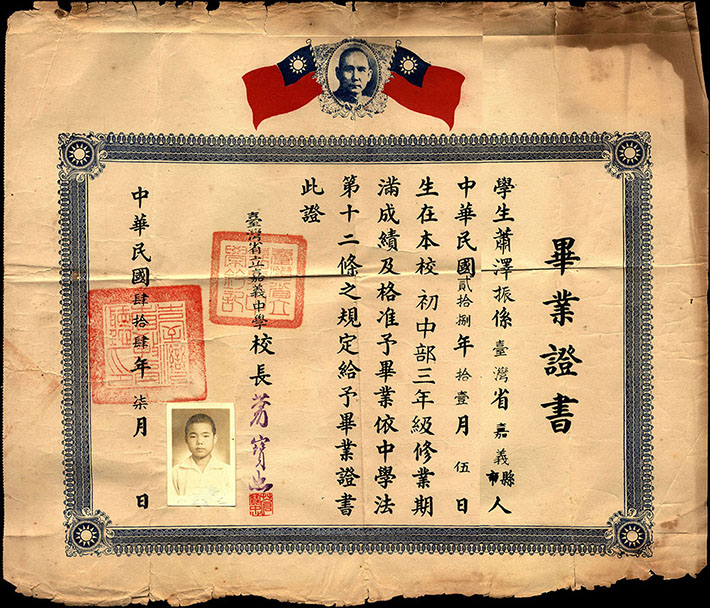 畢業證書
學生蕭澤振係臺灣省嘉義縣市人
中華民國貳拾捌年拾壹月伍日
生在本校初中部三年級修業期
滿成績及格准予畢業依中學法
第十二條之規定給予畢業證書
此證
臺灣省立嘉義中學校長
中華民國肆拾肆年柒月 日